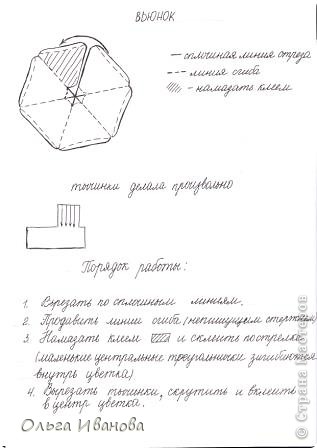 ВЬЮНОК
— сплошная линия отреза
--- линия огиба
- намазать клеем
тычинки делала произвольно
Порядок работы:
1. Вырезать по сплошным линиям.
2. Продавить линии огиба (непишущим стержнем)
3 Намазать клеем и склеить по стрелке
(маленькие центральные треугольнички загибаются
внутрь цветка)
4. Вырезать тычинки, скрутить и вклеить
в центр цветка.
Ольга Иванова
© Страна Мастеров